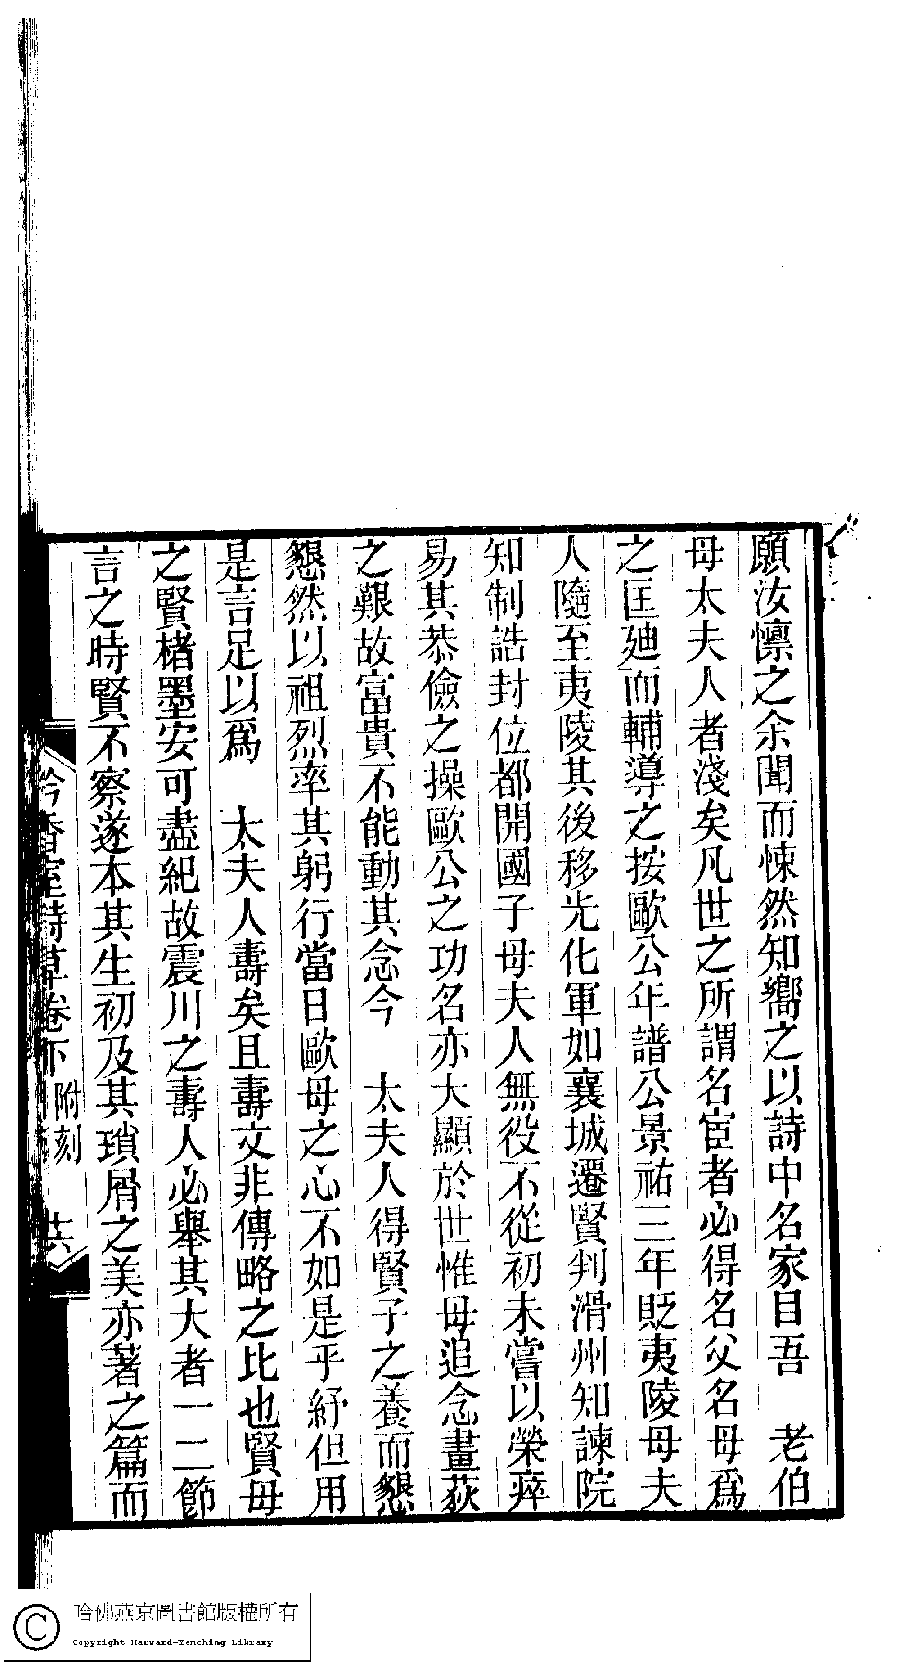 願汝懔之余聞而悚然知嚮之以詩中名家目吾　老伯
母太夫人者淺矣凡世之所謂名宦者必得名父名母爲
之匡廸而輔導之按歐公年譜公景祐三年貶夷陵母夫
人隨至夷陵其後移光化軍如襄城遷賢判滑州知諫院
知制誥封位都開國子母夫人無役不從初未嘗以榮瘁
易其恭儉之操歐公之功名亦大顯於世惟母追念畫荻
之艱故富貴不能動其念今　太夫人得賢子之養而懇
懇然以祖烈率其躬行當日歐母之心不如是乎紓但用
是言足以爲　太夫人壽矣且壽文非傳略之比也賢母
之賢楮墨安可盡紀故震川之壽人必舉其大者一二節
言之時賢不察遂本其生初及其瑣屑之美亦著之篇而
吟香室詩草卷下 附刻
哈佛燕京圖書館版權所有
Copyright Harvard-Yenching Library